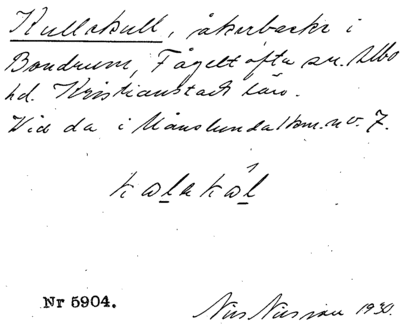 Kullakull, åkerbacke i
Bondrum, Fågeltofta sn. Albo
hd. Kristianstads län.
Vid da i Månslunda 1 km. n.v. 7.
kalakal
Nr 5904.
Nils Nilsson 1930.